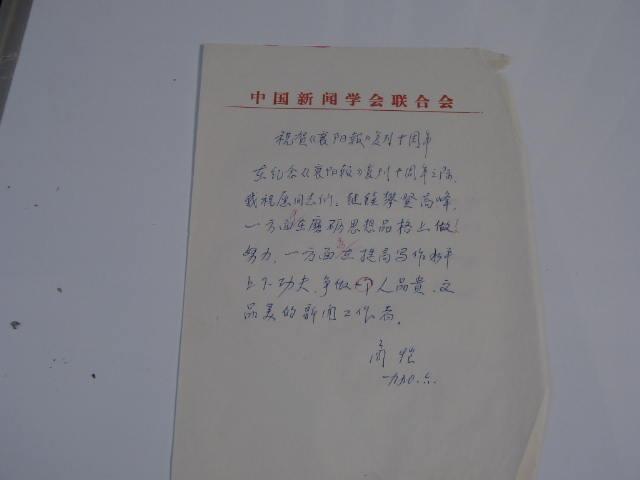 中国新闻学会联合会
祝贺《襄阳报》复刊十周年
在纪念《襄阳报》复刊十周年之际,
我祝愿同志们:继续攀登高峰,
一方面要在磨砺思想品格上做
努力,一方面要在提高写作水平
上下功夫,争做一个人品贵、文
品美的新闻工作者。
商恺
一九九〇.六.